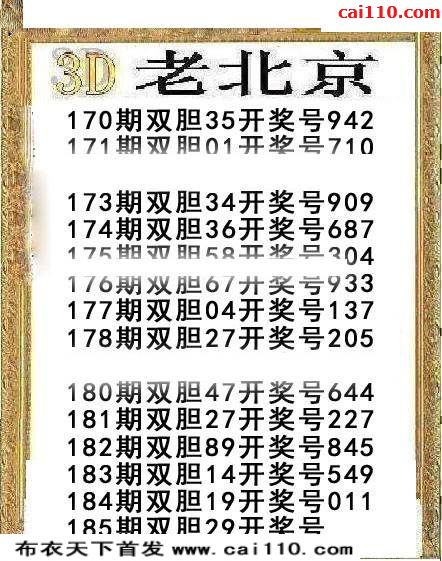 cai110.com
3D 老北京
170期双胆35开奖号942
171期双胆01开奖号710
173期双胆34开奖号909
174期双胆36开奖号687
175期双胆58开奖号304
176期双胆67开奖号933
177期双胆04开奖号137
178期双胆27开奖号205
180期双胆47开奖号644
181期双胆27开奖号227
182期双胆89开奖号845
183期双胆14开奖号549
184期双胆19开奖号011
185期双胆29开奖号
布衣天下首发 www.cai110.com